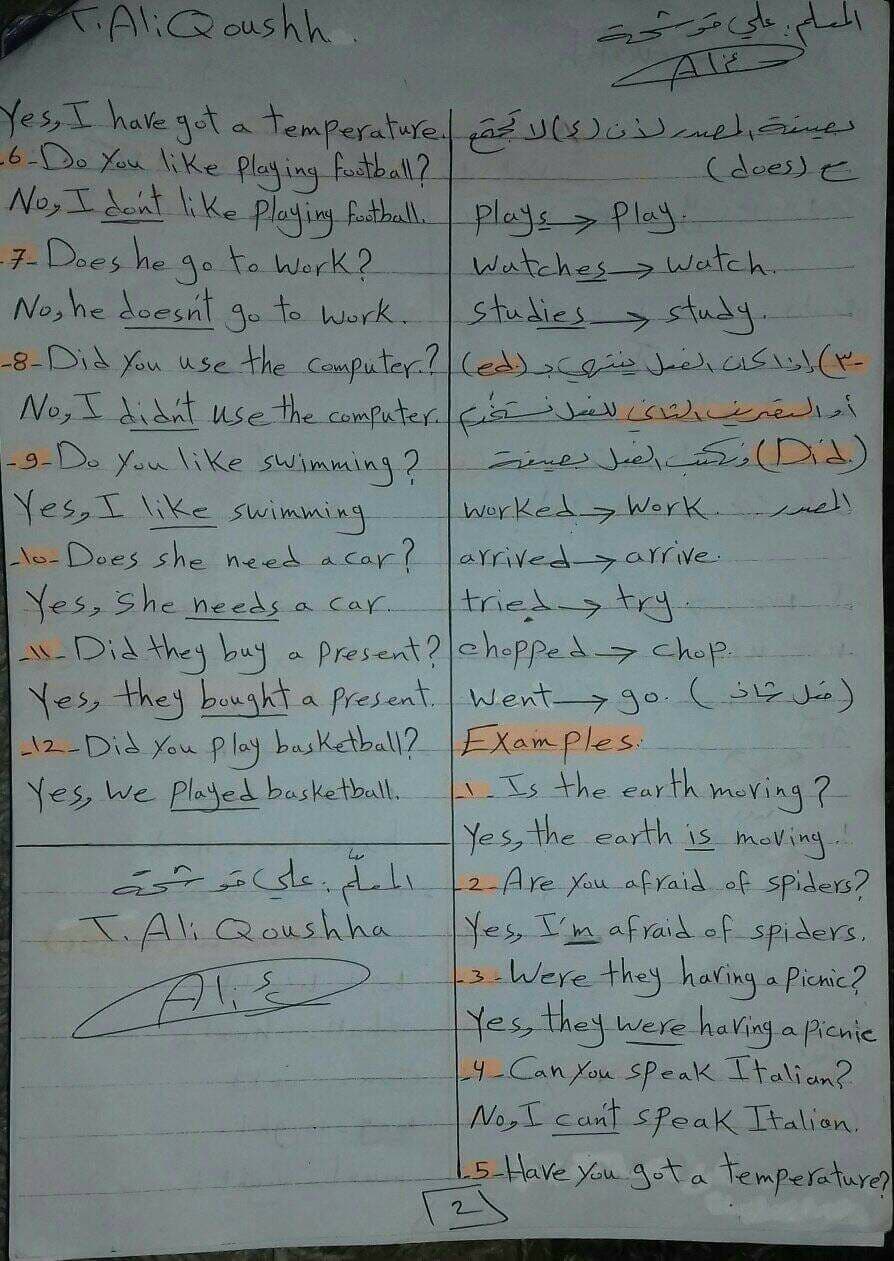 T. Ali Qoushh .
المعلم: علي قوشحة
Ali
بصيغة المصدر لأن (s) لا تجتمع
مع (does)
plays → play.
watches → watch.
studies → study.
٣-) إذا كان الفعل ينتهي بـ (ed)
أو التصريف الثاني للفعل نستخدم
(Did) ونكتب الفعل بصيغة
المصدر worked → work.
arrived → arrive.
tried → try.
chopped → chop.
went → go. (فعل شاذ)
Examples:
1- Is the earth moving?
Yes, the earth is moving.
2- Are you afraid of spiders?
Yes, I'm afraid of spiders.
3- Were they having a picnic?
Yes, they were having a picnic
4- Can you speak Italian?
No, I can't speak Italian.
5- Have you got a temperature?
Yes, I have got a temperature.
6- Do you like playing football?
No, I don't like playing football.
7- Does he go to work?
No, he doesn't go to work.
8- Did you use the computer?
No, I didn't use the computer.
9- Do you like swimming?
Yes, I like swimming
10- Does she need a car?
Yes, she needs a car.
11- Did they buy a present?
Yes, they bought a present.
12- Did you play basketball?
Yes, we played basketball.
المعلّم: علي قوشحة
T. Ali Qoushha
Ali
2